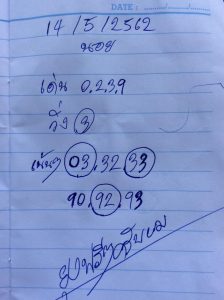 DATE : ....../....../......
14/5/2562
นอย
เด่น 0.2.3.9
วิ่ง 3
เน้นๆ 03.32.33
90.92.93